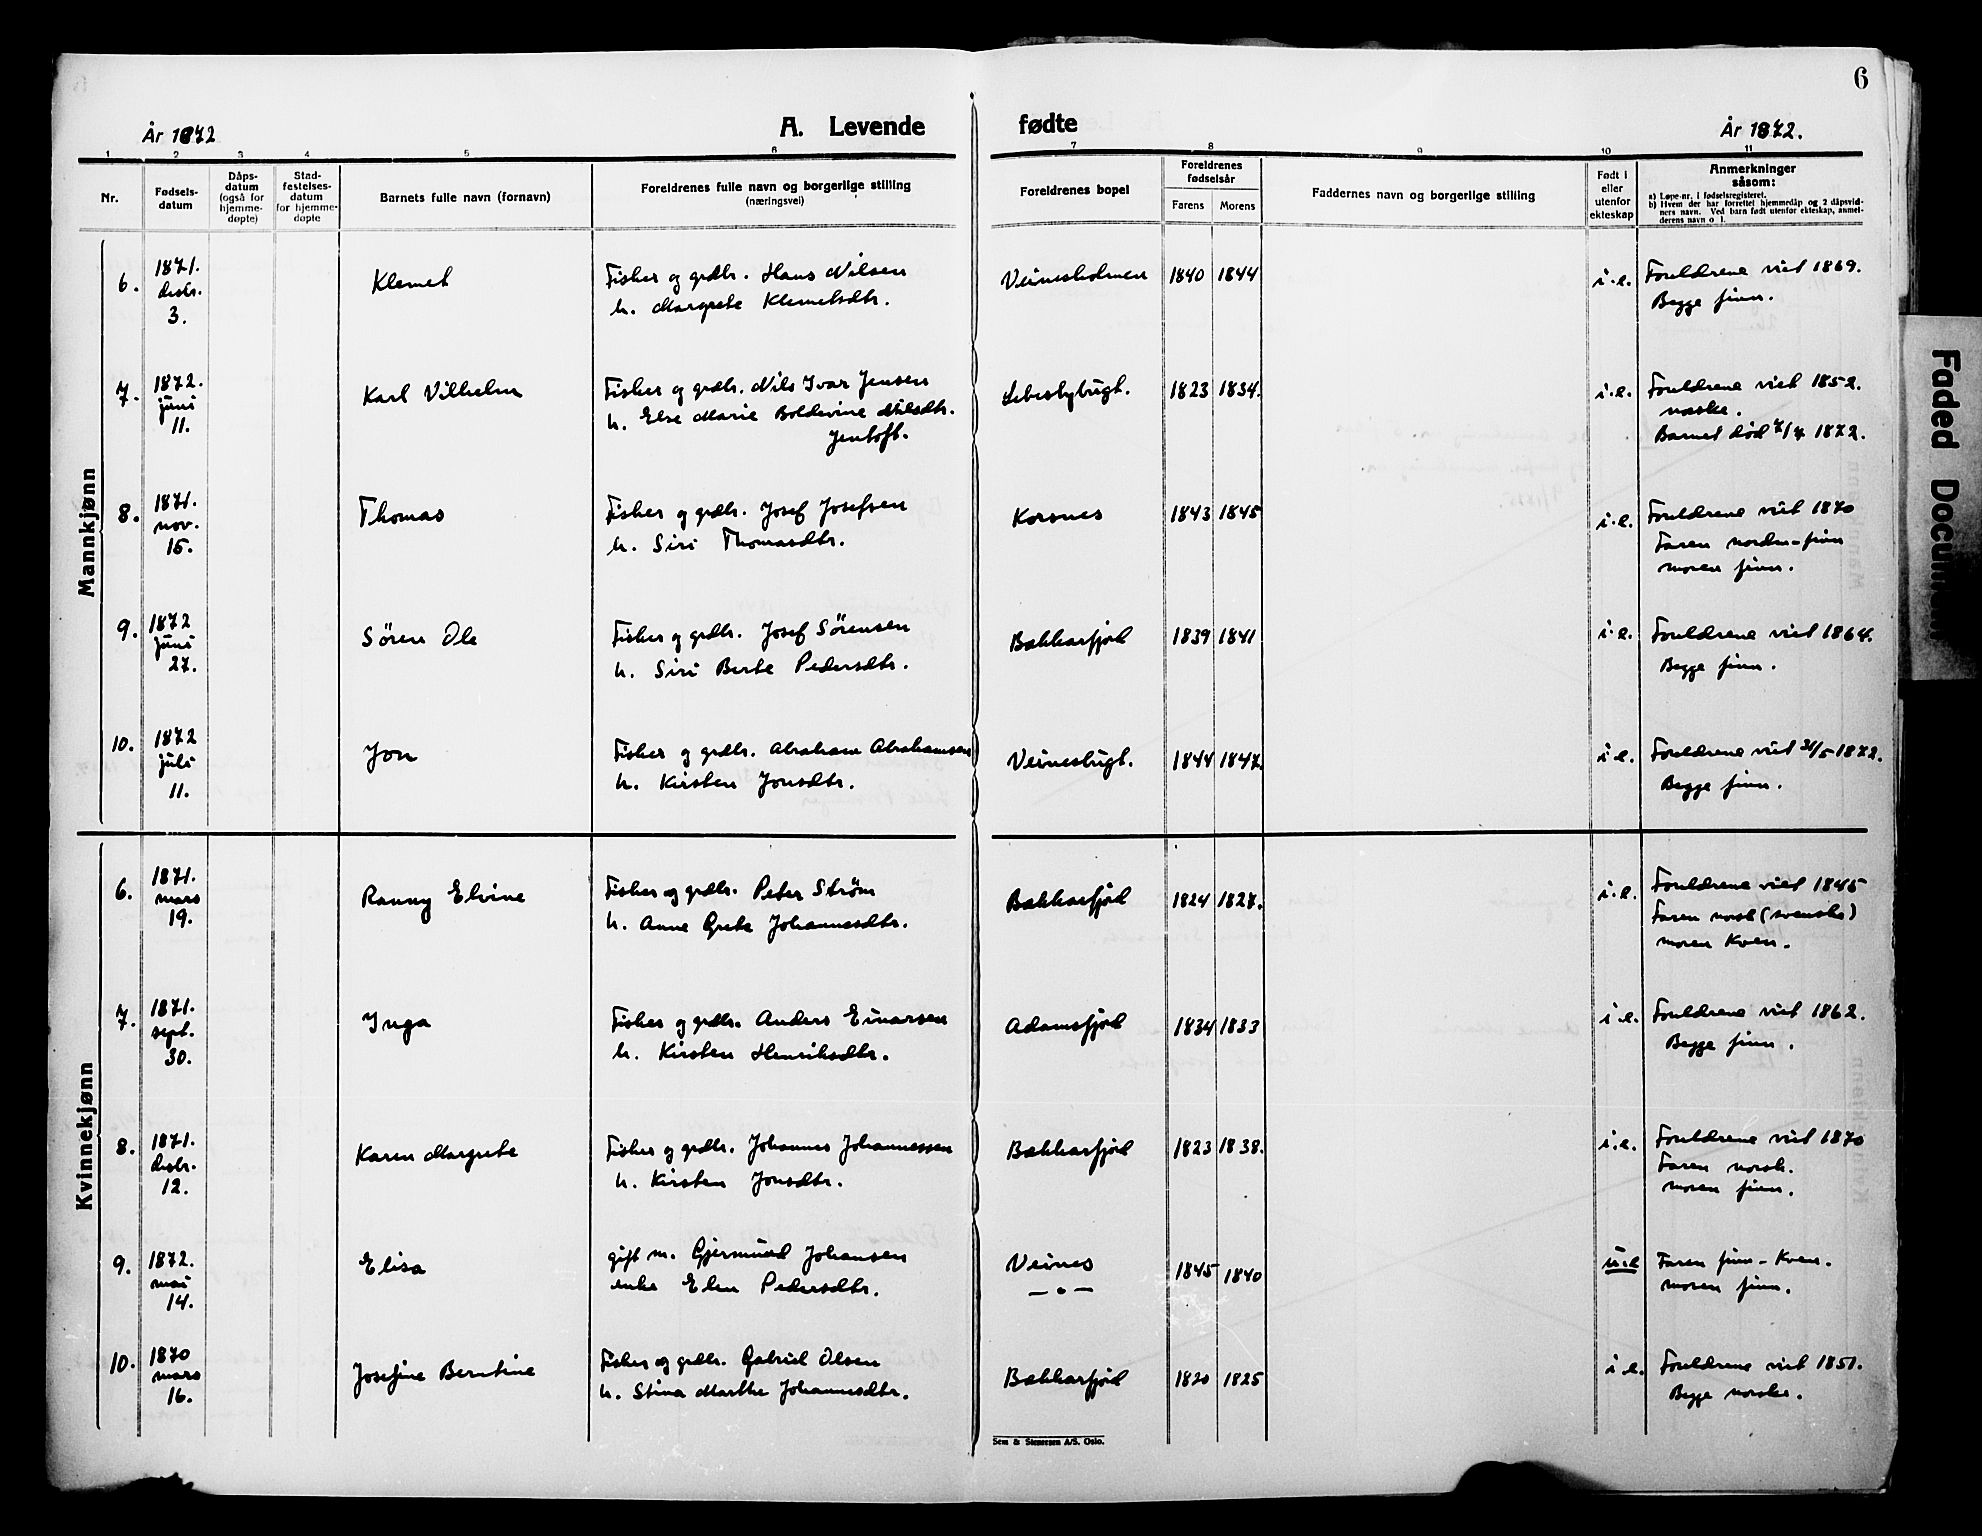 6
År 1872
A. Levende fødte
År 1872.
1 2 3 4 5 6 7 8 9 10 11
Nr.
Fødsels-
datum
Dåps-
datum
(også for
hjemme-
døpte)
Stad-
festelses-
datum
for hjemme-
døpte
Barnets fulle navn (fornavn)
Foreldrenes fulle navn og borgerlige stilling
(næringsvei)
Foreldrenes bopel
Foreldrenes
fødselsår
Farens Morens
Faddernes navn og borgerlige stilling
Født i
eller
utenfor
ekteskap
Anmerkninger
såsom:
a) Løpe-nr. i fødselsregisteret.
b) Hvem der har forrettet hjemmedåp og 2 dåpsvid-
ners navn. Ved barn født utenfor ekteskap, anmel-
derens navn o. l.
Mannkjønn
6. 1871. desbr. 3. Klemet
Fisker og grdbr. Hans Nilsen
h. Margrete Klemetsdtr.
Veinesholmen 1840 1844 i.e.
Foreldrene viet 1869.
Begge finn.
7. 1872. juni 11. Karl Vilhelm
Fisker og grdbr. Nils Ivar Jensen
h. Else Marie Boldevine Nilsdtr.
Jentoft.
Lebesbybugt. 1823 1834. i.e.
Foreldrene viet 1852.
norske.
Barnet død 7/7 1872.
8. 1871. nov. 15. Thomas
Fisker og grdbr. Josef Josefsen
h. Siri Thomasdtr.
Korsnes 1843 1845 i.e.
Foreldrene viet 1870
Faren norsk-finn
moren finn.
9. 1872 juni 27. Søren Ole
Fisker og grdbr. Josef Sørensen
h. Siri Berte Pedersdtr.
Bekkarfjord 1839 1841 i.e.
Foreldrene viet 1864.
Begge finn.
10. 1872 juli 11. Jon
Fisker og grdbr. Abraham Abrahamsen
h. Kirsten Jonsdtr.
Veinesbugt. 1844 1847. i.e.
Foreldrene viet 31/5 1872.
Begge finn.
Kvinnekjønn
6. 1871. mars 19. Ranny Elvine
Fisker og grdbr. Peter Strøm
h. Anne Grete Johannesdtr.
Bekkarfjord 1824 1827. i.e.
Foreldrene viet 1845
Faren norsk (svensk)
moren Kven.
7. 1871. sept. 30. Inga
Fisker og grdbr. Anders Einarsen
h. Kirsten Henriksdtr.
Adamsfjord 1834 1833 i.e.
Foreldrene viet 1862.
Begge finn.
8. 1871. desbr. 12. Karen Margrete
Fisker og grdbr. Johannes Johannessen
h. Kirsten Jonsdtr.
Bekkarfjord 1823 1838. i.e.
Foreldrene viet 1870
Faren norsk.
moren finn.
9. 1872. mai 14. Elisa
gift m. Gjermund Johansen
enke Elen Pedersdtr.
Veines
— " —
1845 1840 u.e
Faren finn-Kven.
moren finn.
10. 1870 mars 16. Josefine Berntine
Fisker og grdbr. Gabriel Olsen
h. Stina Marthe Johannesdtr.
Bekkarfjord 1820 1825 i.e.
Foreldrene viet 1851.
Begge norske.
Sem & Stenersen A/S. Oslo.
Faded Document